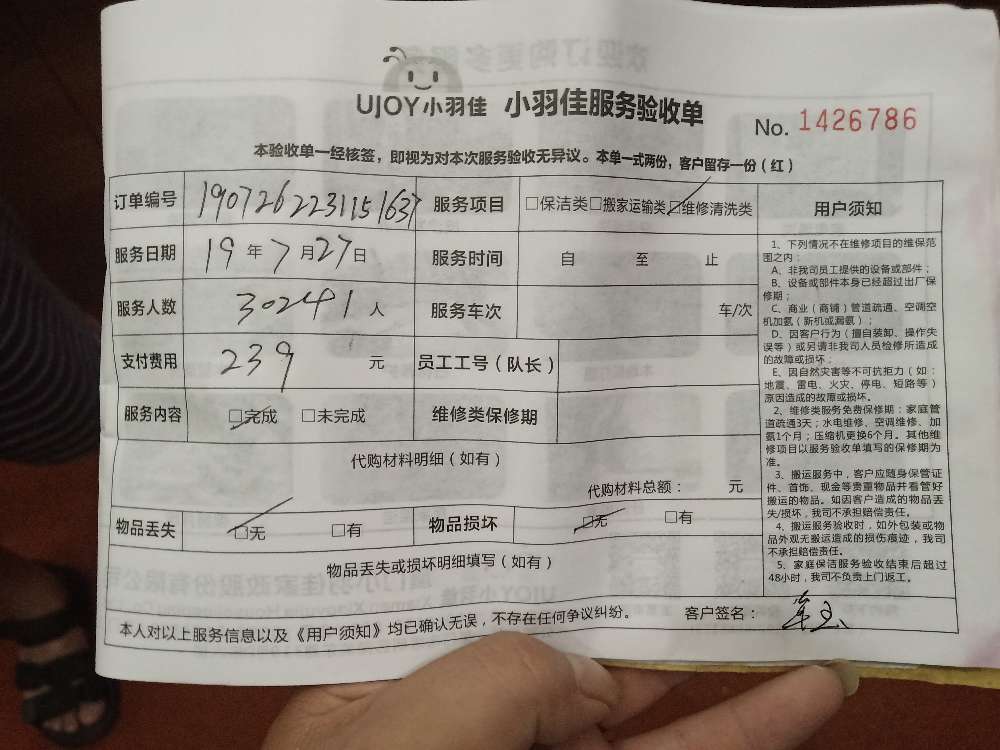 UJOY小羽佳 小羽佳服务验收单
No. 1426786
本验收单一经核签，即视为对本次服务验收无异议。本单一式两份，客户留存一份（红）
订单编号 190726223115163 服务项目 □保洁类□搬家运输类☑维修清洗类
服务日期 19年7月27日 服务时间 自 至 止
服务人数 30241人 服务车次 车/次
支付费用 239 元 员工工号（队长）
服务内容 ☑完成 □未完成 维修类保修期
代购材料明细（如有）
代购材料总额： 元
物品丢失 ☑无 □有 物品损坏 ☑无 □有
物品丢失或损坏明细填写（如有）
本人对以上服务信息以及《用户须知》均已确认无误，不存在任何争议纠纷。 客户签名：
用户须知
1、下列情况不在维修项目的维保范
围之内：
A、非我司员工提供的设备或部件；
B、设备或部件本身已经超过出厂保
修期；
C、商业（商铺）管道疏通、空调空
机加氨（新机或漏氨）；
D、因客户行为（擅自装卸、操作失
误等）或另请非我司人员检修所造成
的故障或损坏；
E、因自然灾害等不可抗拒力（如：
地震、雷电、火灾、停电、短路等）
原因造成的故障或损坏。
2、维修类服务免费保修期：家庭管
道疏通3天；水电维修、空调维修、加
氨1个月；压缩机更换6个月。其他维
修项目以服务验收单填写的保修期为
准。
3、搬运服务中，客户应随身保管证
件、首饰、现金等贵重物品并看管好
搬运的物品。如因客户造成的物品丢
失/损坏，我司不承担赔偿责任。
4、搬运服务验收时，如外包装或物
品外观无搬运造成的损伤痕迹，我司
不承担赔偿责任。
5、家庭保洁服务验收结束后超过
48小时，我司不负责上门返工。